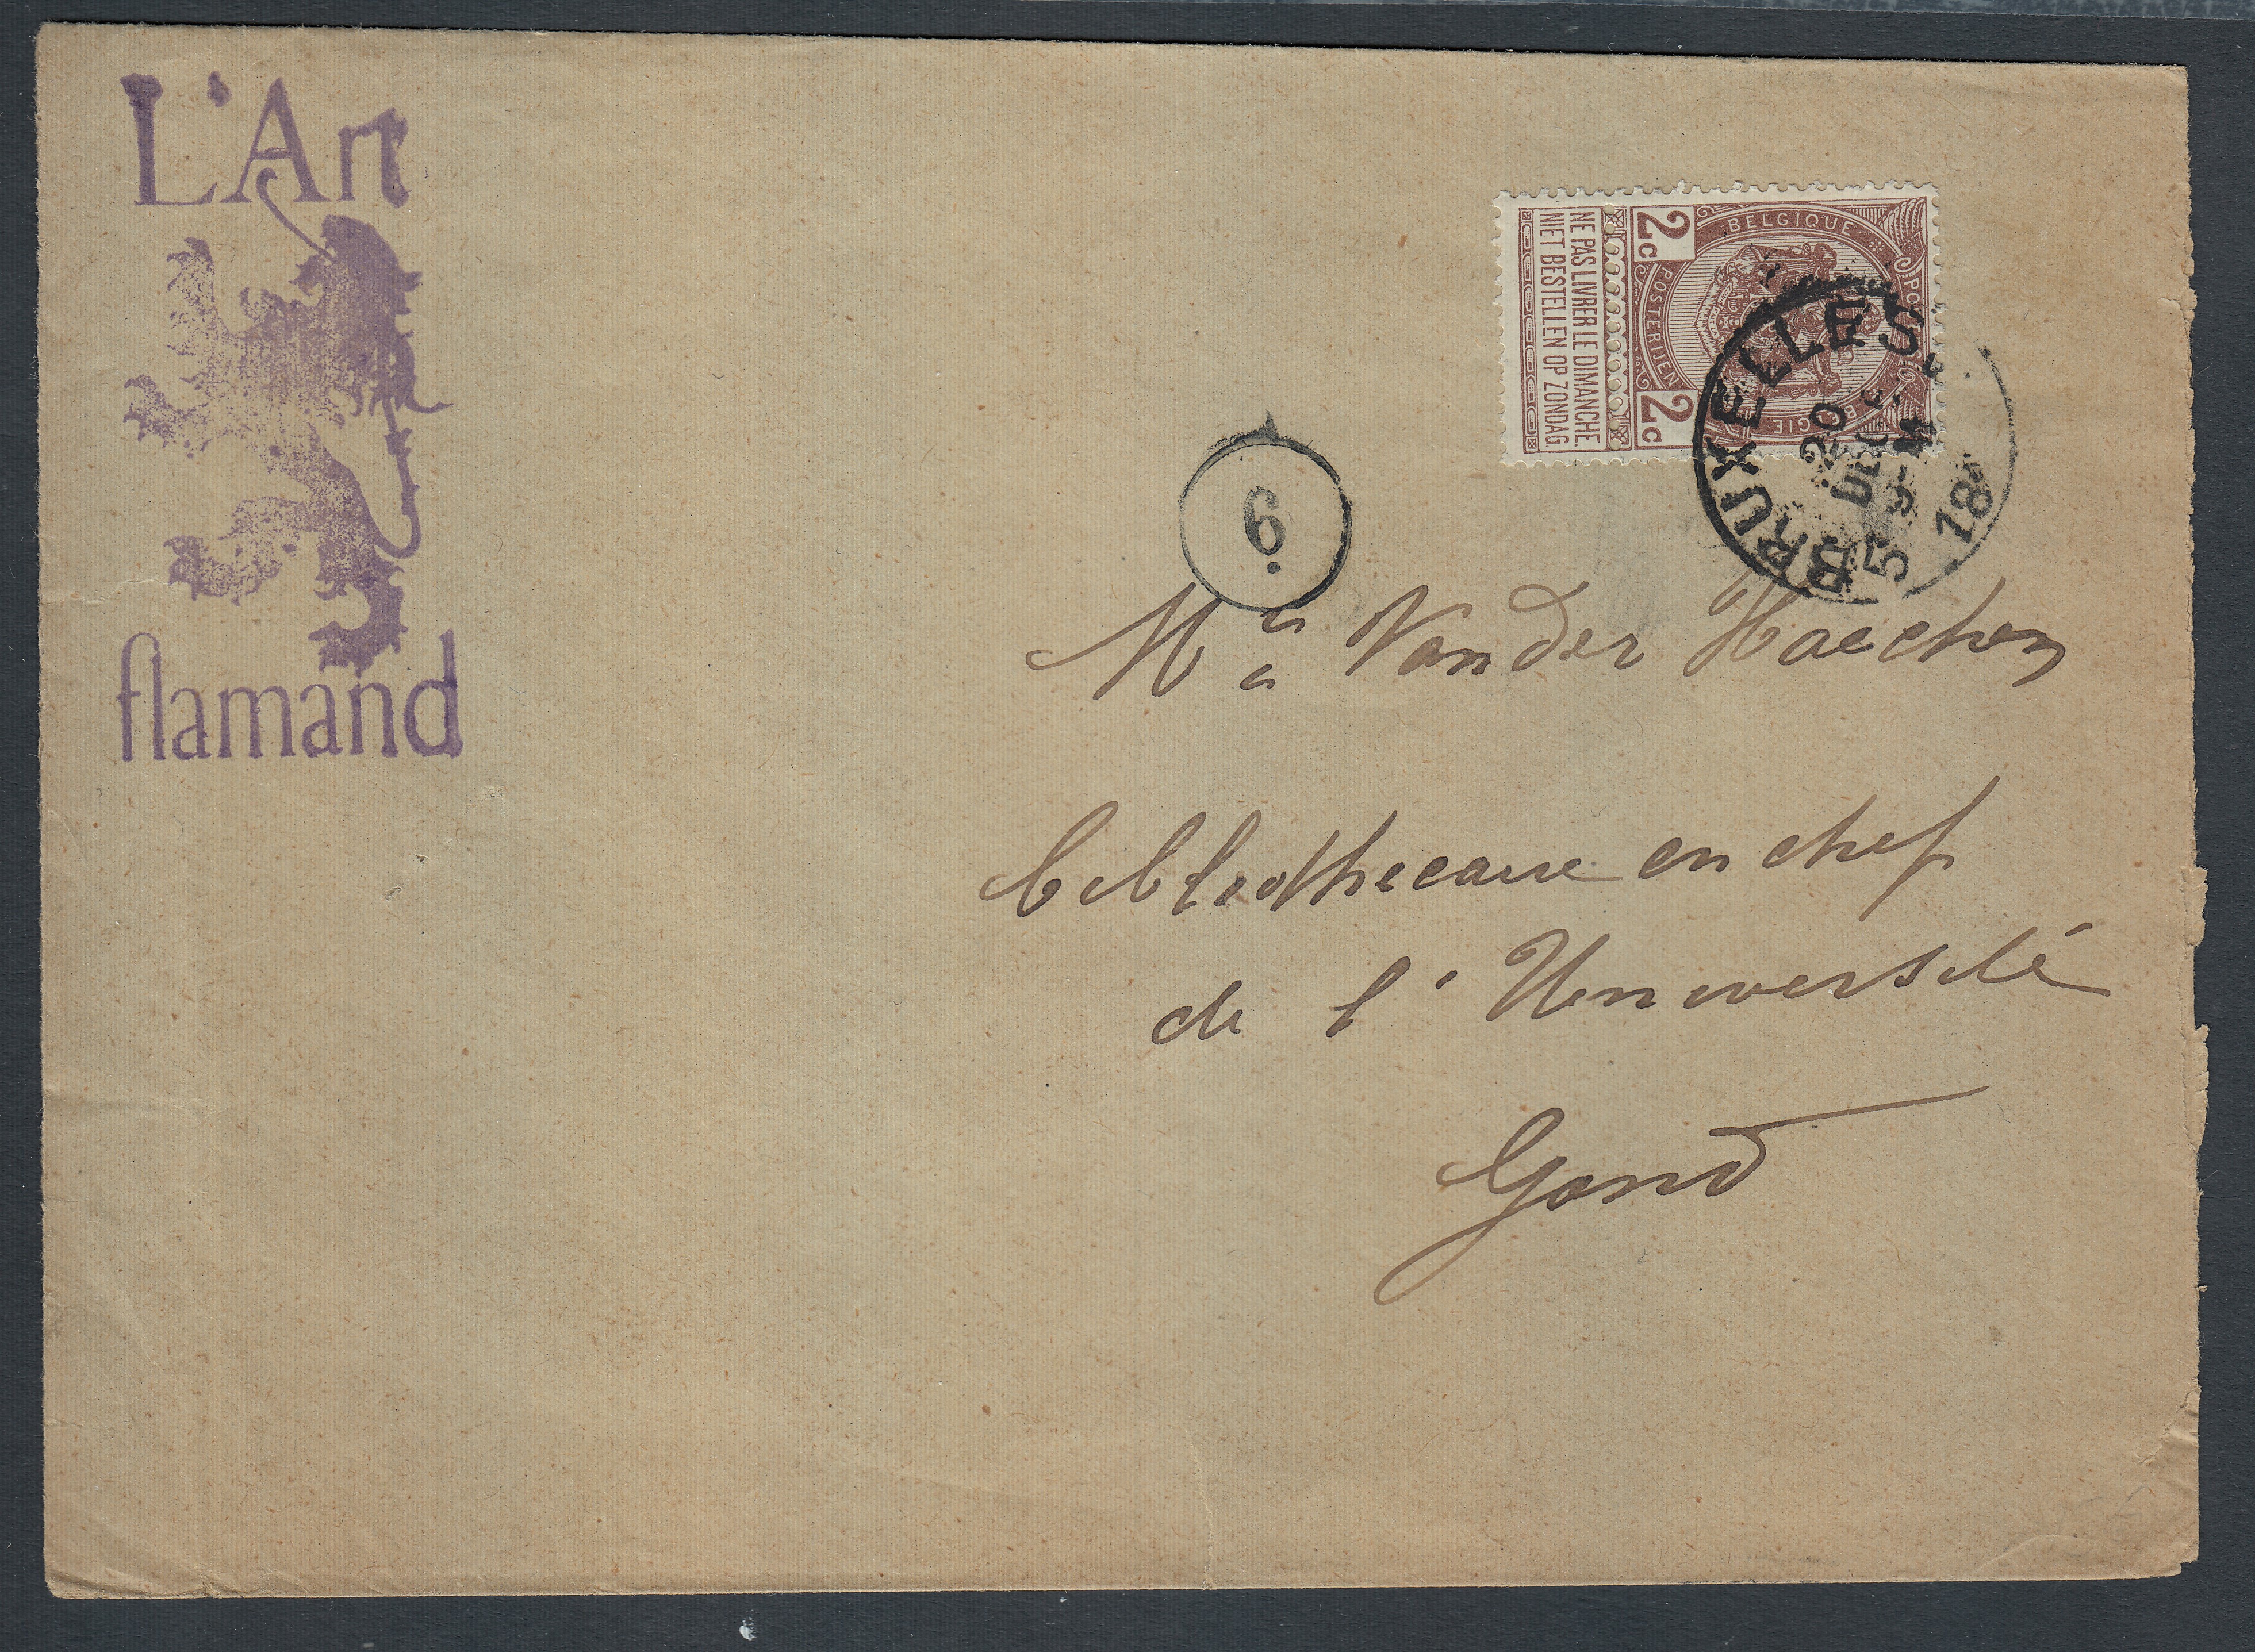 L'Art
flamand
2c 2c
BELGIQUE
POSTERIJEN
NE PAS LIVRER LE DIMANCHE.
NIET BESTELLEN OP ZONDAG
BRUXELLES
20
DEC
9-M
18
5
6.
Mr Van der Haeghen
bibliothecaire en chef
de l'Université
Gand